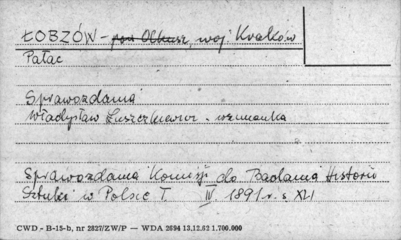 ŁOBZÓW - pow Olkusz, woj Kraków
Pałac
Sprawozdania
Władysław Łuszczkiewicz - wzmianka
Sprawozdania Komisji do Badania Historii
Sztuki w Polsce T. IV 1891 r. s. XLI
CWD - B-15-b, nr 2827/ZW/P — WDA 2694 13.12.62 1.700.000